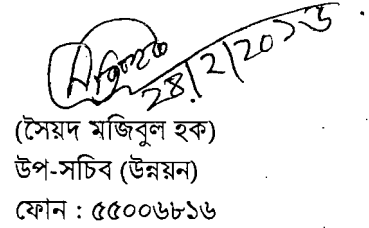 ২৪/২/২০১৬
(সৈয়দ মজিবুল হক)
উপ-সচিব (উন্নয়ন)
ফোন : ৫৫০০৬৮১৬